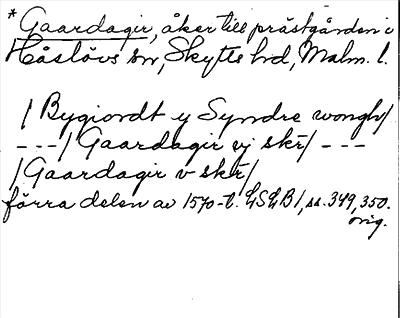 * Gaardagir, åker till prästgården i
Håslövs sn, Skytts hd, Malm. l.
/ Bygiordt y Syndre wongh/
---/ Gaardagir vj skr/ ---
/ Gaardagir v skr/
förra delen av 1570-t. LSLB 1, ss. 349, 350.
orig.